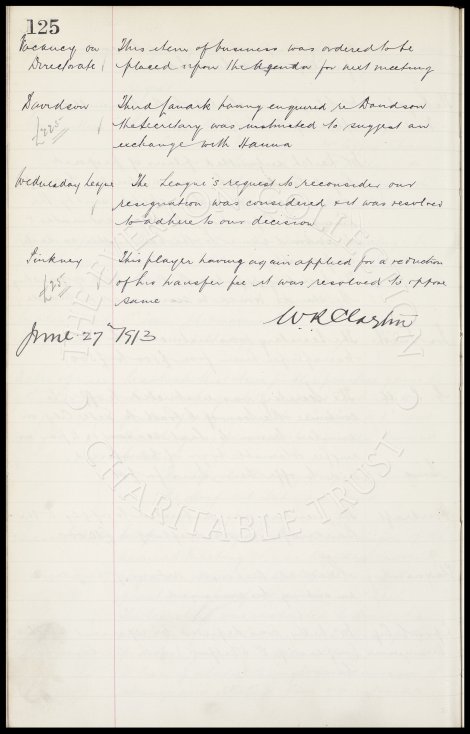 125
Vacancy on This item of business was ordered to be
Directorate placed upon the Agenda for next meeting
Davidson Third Lanark having enquired re Davidson
£225 the Secretary was instructed to suggest an
exchange with Hanna
Wednesday League The League's request to reconsider our
resignation was considered & it was resolved
to adhere to our decision
Pinkney This player having again applied for a reduction
£25 of his transfer fee it was resolved to oppose
same
W R Clayton
June 27th 1913
CHARITABLE TRUST